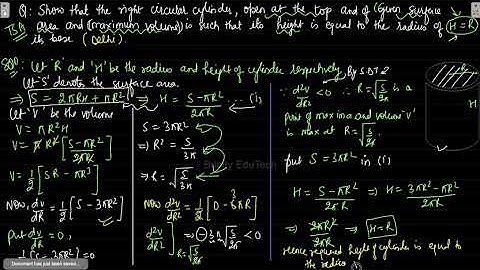 Q: Show that the right circular cylinder, open at the top and of (Given Surface
area and (maximum volume) is such that its height is equal to the radius of
its base (Delhi)
H = R
Solⁿ: Let 'R' and 'H' be the radius and height of cylinder respectively
Let 'S' denote the surface area
⇒ S = 2πRH + πR² ⇒ H = (S - πR²)/(2πR) ... (i)
Let 'V' be the volume
V = πR²H
V = πR² [(S - πR²)/(2πR)]
V = 1/2 [SR - πR³]
Now, dv/dR = 1/2 [S - 3πR²]
Put dv/dR = 0,
1/2 (S - 3πR²) = 0
S = 3πR²
⇒ R² = S/3π
⇒ R = √(S/3π)
Now d²v/dR² = 1/2 [0 - 6πR]
By S.D.T
∵ d²v/dR² < 0 ∴ R = √(S/3π)
point of maxima and volume 'V'
is max at R = √(S/3π)
put S = 3πR² in (i)
H = (S - πR²)/(2πR) ⇒ H = (3πR² - πR²)/(2πR)
⇒ 2πR²/2πR ⇒ H = R
Hence required height of cylinder is equal to
the radius
EduTech
Document has just been saved